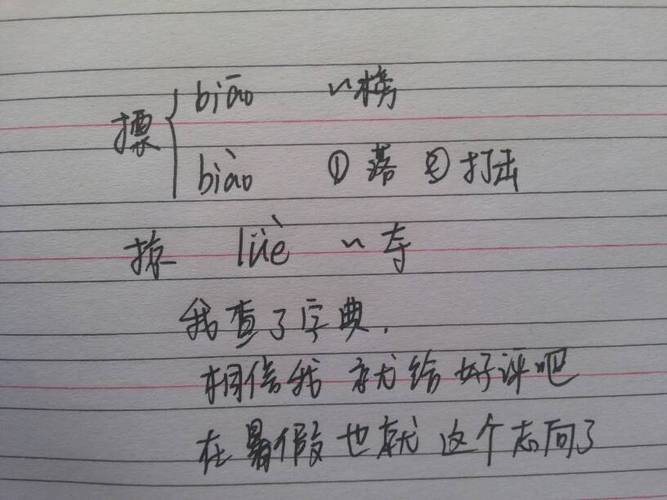 摽 { biāo ~榜
biào ①落 ②打击
掠 lüè ~夺
我查了字典.
相信我就给好评吧
在暑假也就这个志向了